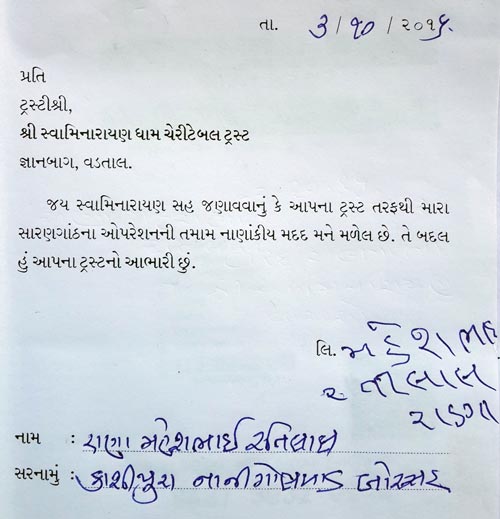 તા. 3/૧૦/૨૦૧૬.
પ્રતિ
ટ્રસ્ટીશ્રી,
શ્રી સ્વામિનારાયણ ધામ ચેરીટેબલ ટ્રસ્ટ
જ્ઞાનબાગ, વડતાલ.
જય સ્વામિનારાયણ સહ જણાવવાનું કે આપના ટ્રસ્ટ તરફથી મારા
સારણગાંઠના ઓપરેશનની તમામ નાણાંકીય મદદ મને મળેલ છે. તે બદલ
હું આપના ટ્રસ્ટનો આભારી છું.
લિ. મહેશભાઇ
રતીલાલ
રાણા
નામ : રાણા મહેશભાઈ રતિલાલ
સરનામું : કાશીપુરા નાનીગોલવાડ બોરસદ